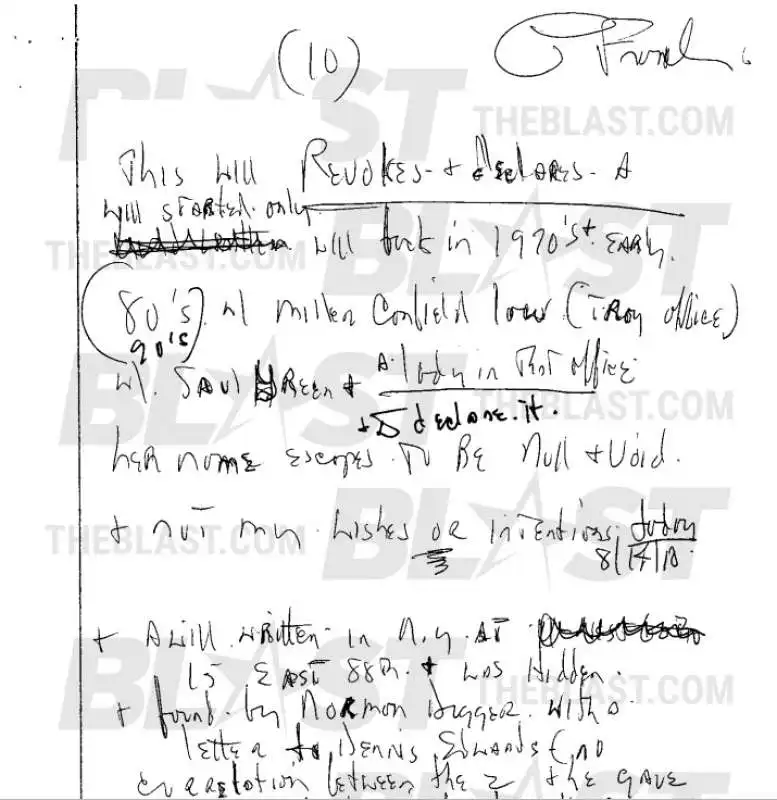 (10)
This will Revokes + declares - A
will started only
will back in 1970's + Early.
(80's) w/ Miller Canfield law. (Troy office)
90's
w/. Saul Green + A. lady in that office
+ I declare. it.
her name escapes. To Be Null + Void.
+ not my wishes or intentions. today
8/14/10.
+ A will written in N.Y. at
15 East 88th. + was Hidden.
+ found by Norman Dugger with a
letter to Dennis Edwards
correlation between the 2 + he gave
THEBLAST.COM
BLAST